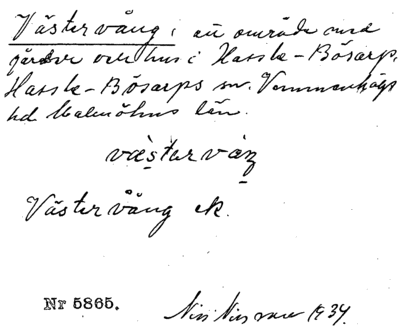 Västervång, ett område med
gårdar och hus i Hassle-Bösarp,
Hassle-Bösarps sn. Vemmenhögs
hd Malmöhus län.
västervåŋ
Västervång ek.
Nr 5865.
1934.